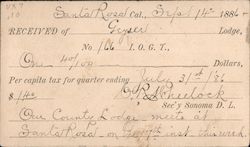 Santa Rosa Cal., Sept 14th 1886
RECEIVED of Geyser Lodge,
No. 166 I. O. G. T.,
One 40/100 Dollars,
Per capita tax for quarter ending July 31st '86
$ 1.40 Wheelock
Sec'y Sonoma D. L.
Our County Lodge meets at
Santa Rosa on inst this week